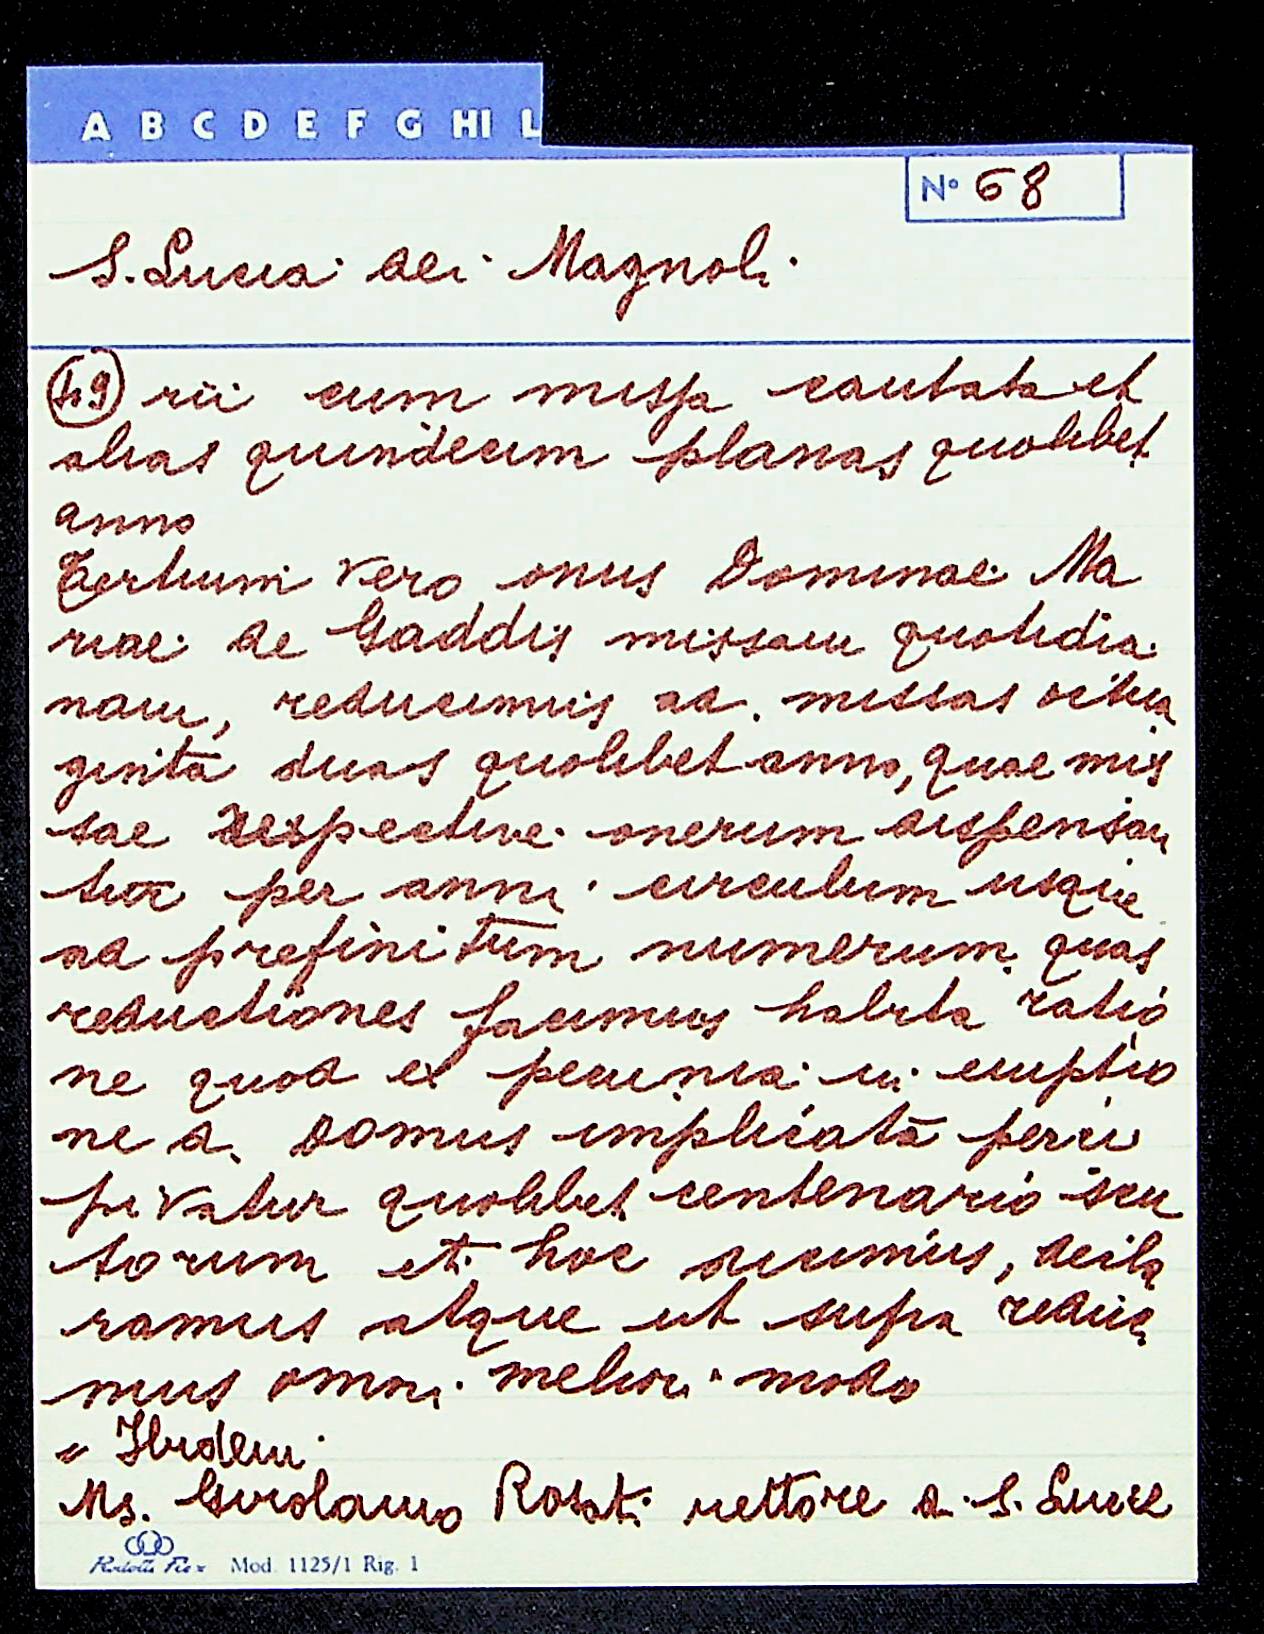 A B C D E F G HI L
N° 68
S. Lucia dei Magnoli
49 rii cum missa cantata et
alias quindecim planas quolibet
anno
Tertium vero onus Dominae Ma
riae de Gaddis missam quotidia
nam, reducimus ad missas octua
ginta duas quolibet anno, quae mis
sae respective onerum dispensan
tur per anni circulum usque
ad prefinitum numerum quas
reductiones facimus habita ratio
ne quod ex pecunia in emptio
ne d. Domus implicata perci
piatur quolibet centenario scu
torum et hoc dicimus, decla
ramus atque ut supra reduci
mus omni meliori modo
= Ibidem
Ms. Girolamo Rosati rettore d. S. Lucie
Mod. 1125/1 Rig. 1